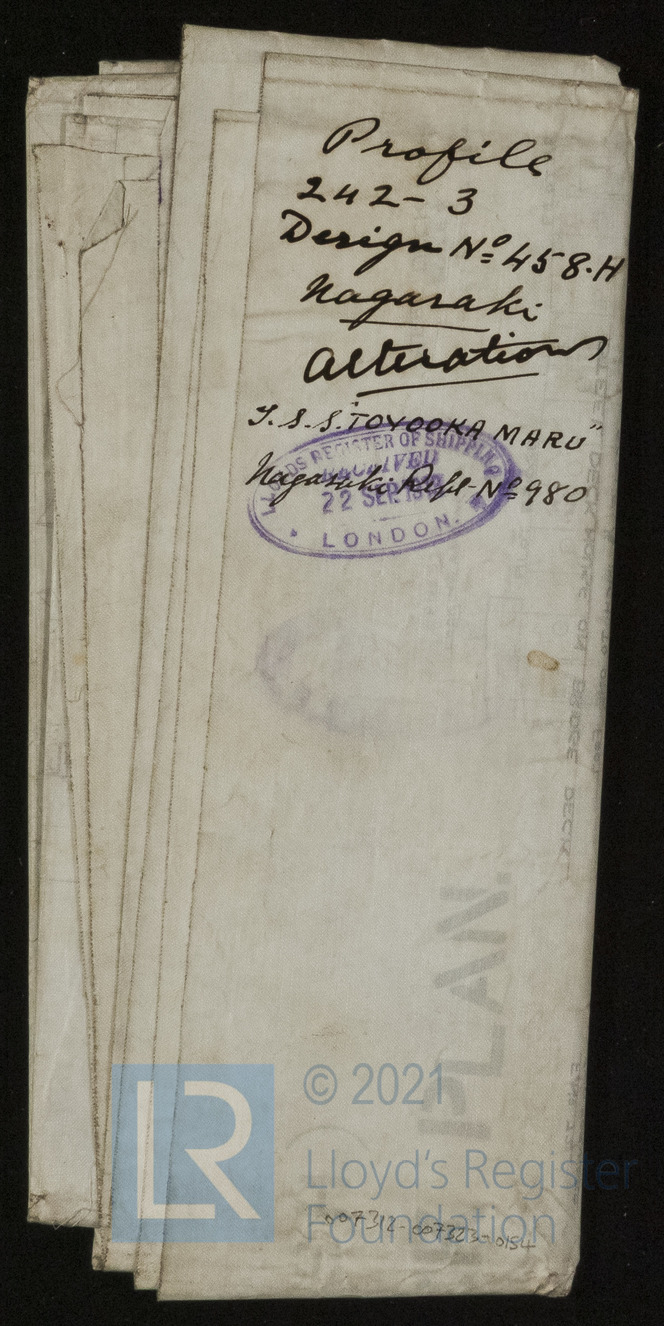 Profile
242- 3
Design Nº 458.H
Nagasaki
Alterations
T.S.S. "TOYOOKA MARU"
LLOYDS REGISTER OF SHIPPING
RECEIVED
Nagasaki Rept Nº 980
22 SEP
LONDON.
DECK HOUSE ON BRIDGE DECK
PLAN.
© 2021
LR
Lloyd's Register
Foundation
007312-007323-0154